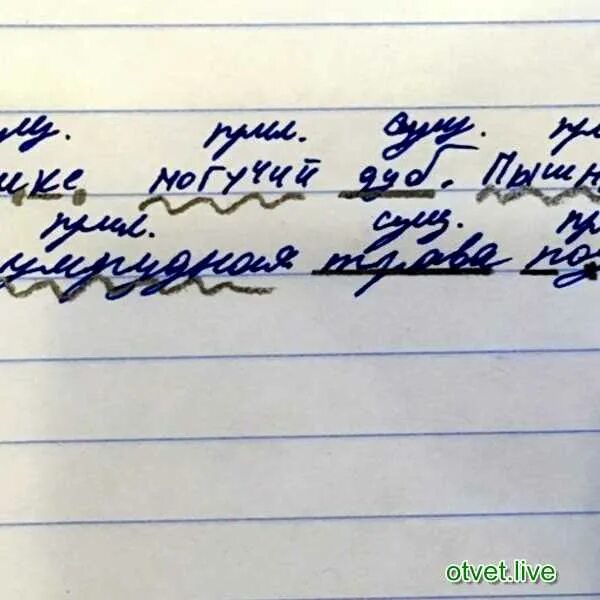 прил. сущ.
могучий дуб. Пышн
прил. сущ. пр
умрудная трава по
otvet.live